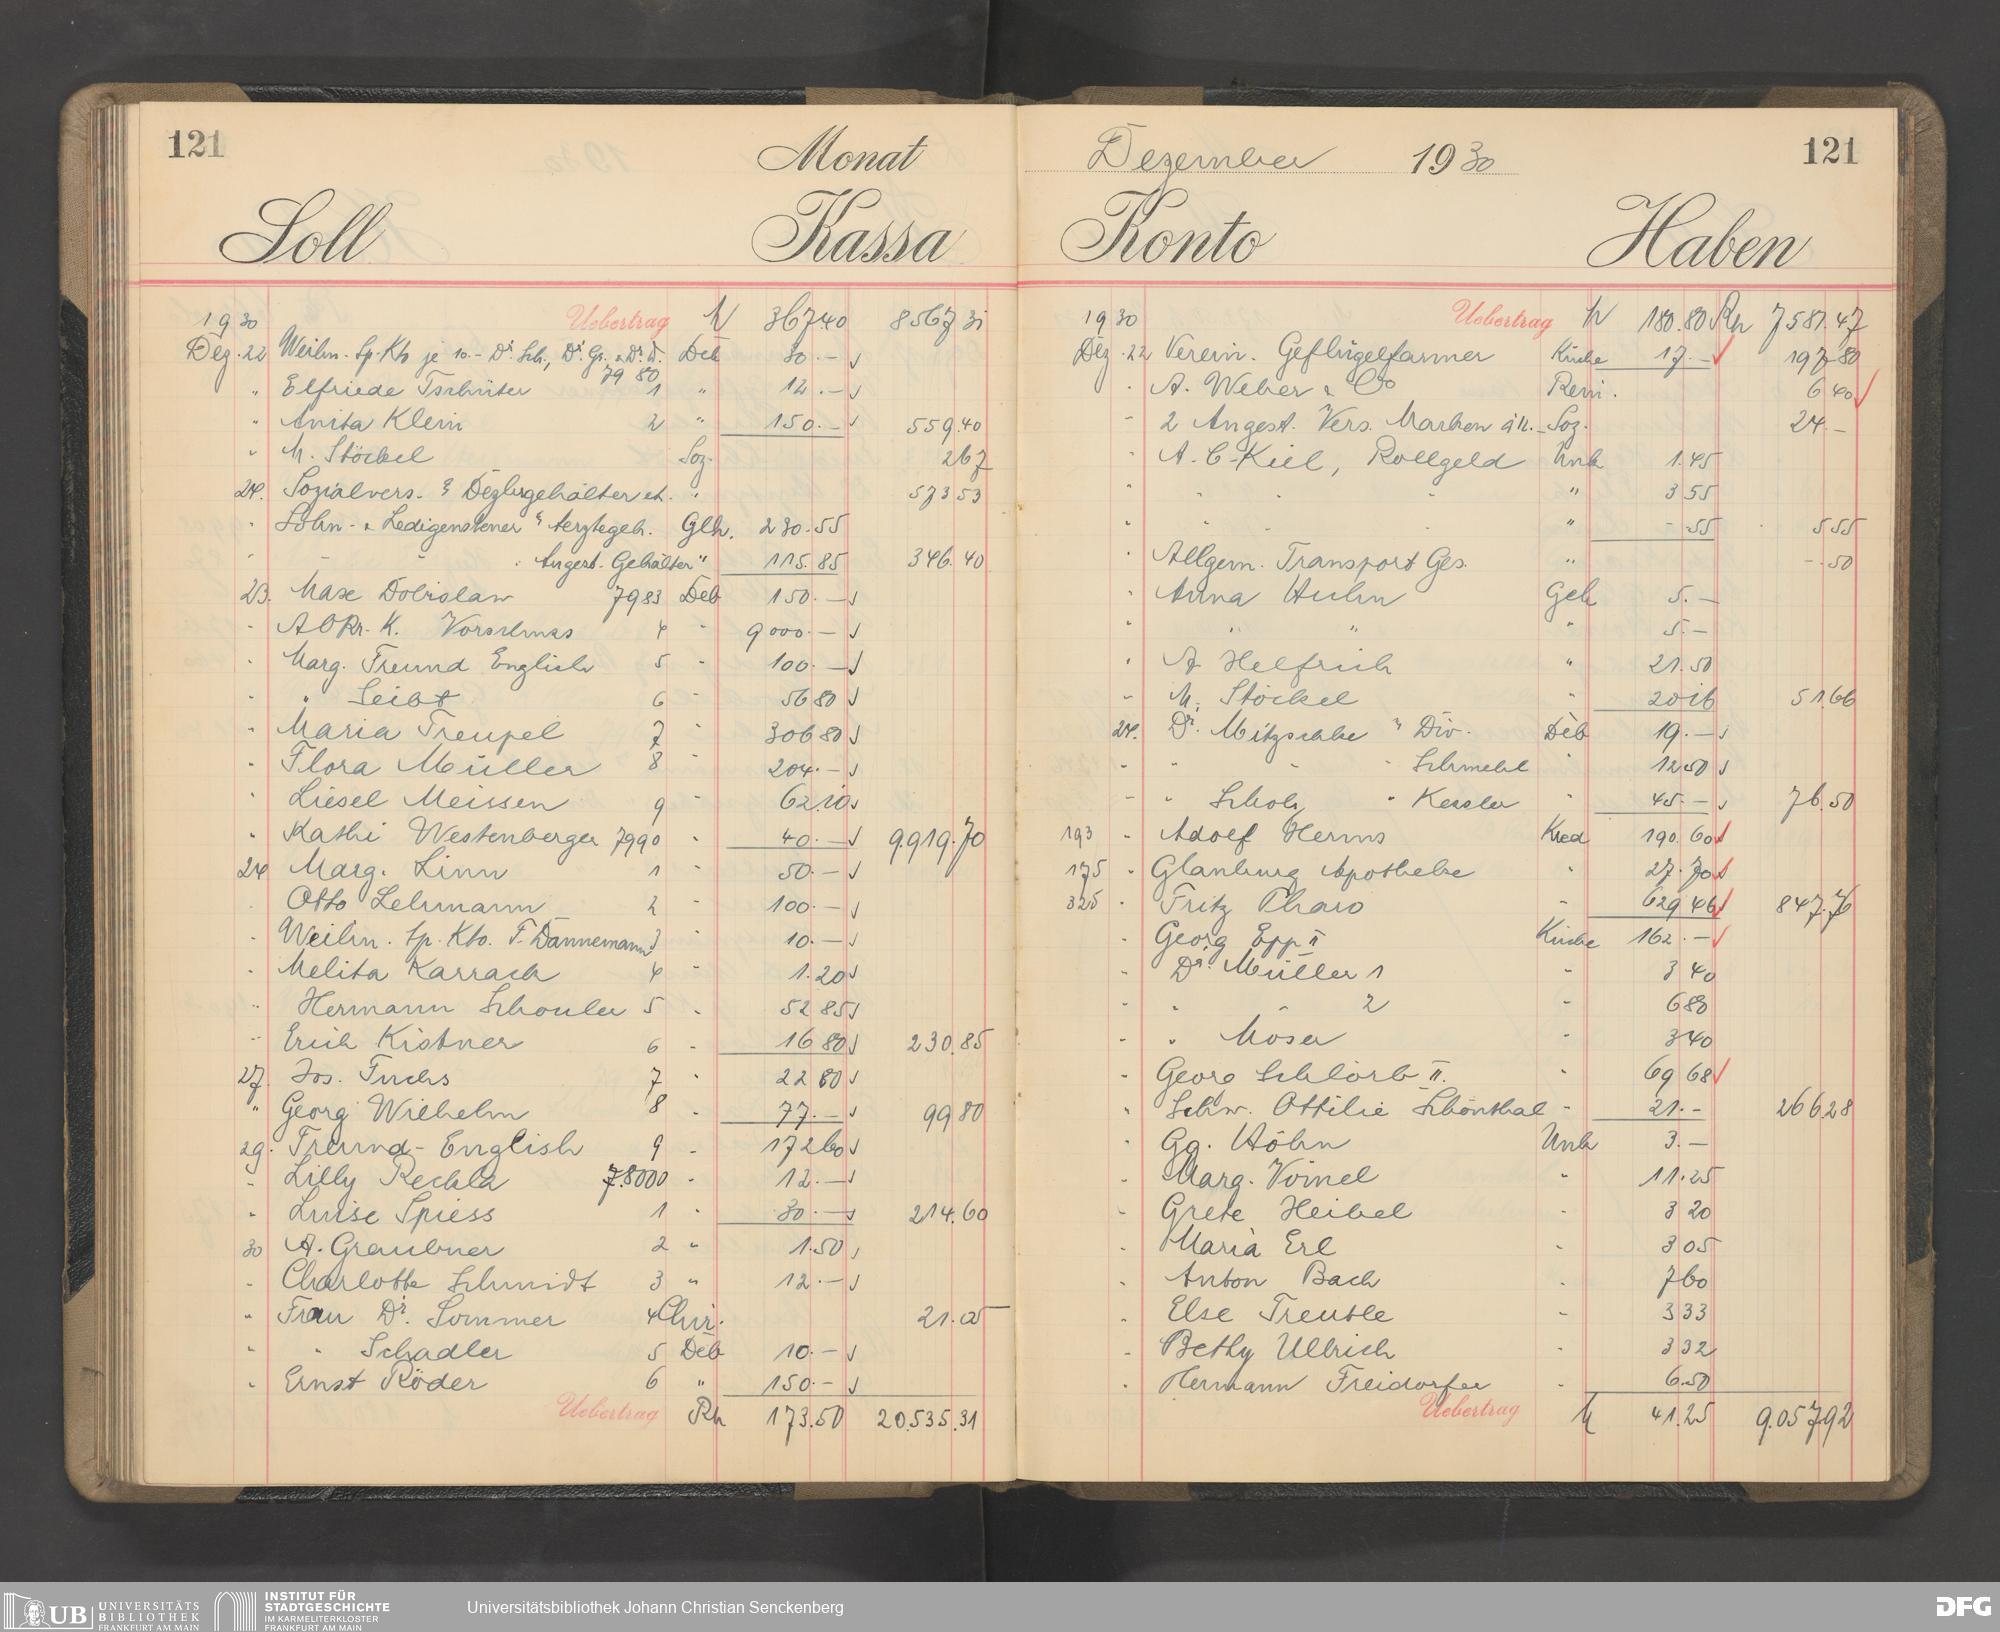 121 Monat
Soll Kassa
1930 Uebertrag 367.40 8567 31
Dez. 22 Weihn. Sp. Kto je 10.- Dr. Sch., Dr. Gr. u. Dr. W. 7980 Deb 30.-
" Elfriede Tschüter 1 " 12.-
" Anita Klein 2 " 150.- 559.40
" M. Stöckel Soz. 2 67
24. Sozialvers. Dezbrgehälter et. " 573 53
" Lohn- u. Ledigensteuer Aerztegeh. Geh. 230.55
" Angest. Gehälter " 115.85 346.40
23. Max Dobislaw 7983 Deb 150.-
" A O Kr. K. Vorschuss 4 " 9000.-
" Marg. Freund English 5 " 100.-
" " Seibt 6 " 56 80
" Maria Treupel 7 " 306 80
" Flora Müller 8 " 204.-
" Liesel Meissen 9 " 62.10
" Kathi Westenberger 7990 " 40.- 9.919.70
24 Marg. Linn 1 " 50.-
Otto Lehmann 2 " 100.-
" Weihn. Sp. Kto. F. Dannemann 3 10.-
" Melita Karrach 4 " 1.20
" Hermann Schouler 5 " 52 85
" Erich Kistner 6 " 16 80 230.85
27. Jos. Fuchs 7 " 22 80
" Georg Wilhelm 8 " 77.- 99 80
29. Freund-English 9 " 172 60
" Lilly Rechla 78000 " 12.-
" Luise Spiess 1 " 30.- 214.60
30 A. Graubner 2 " 1.50
" Charlotte Schmidt 3 " 12.-
" Frau Dr. Sommer 4 Chir. 21.05
" " Schadler 5 Deb 10.-
" Ernst Röder 6 " 150.-
Uebertrag 173.50 20.535.31
Dezember 1930 121
Konto Haben
1930 Uebertrag 180.80 7581.47
Dez. 22 Verein. Geflügelfarmer Küche 17.- 197 80
" A. Weber & Co Rein. 6 40
" 2 Angest. Vers. Marken à 12.- Soz. 24.-
" A. C. Kiel, Rollgeld Unk 1.45
" " " " 3 55
" " " " -.55 5 55
" Allgem. Transport Ges. " -.50
" Anna Huhn Geh 5.-
" " " " 5.-
" A. Helfrich " 21.50
" M. Stöckel " 20 16 51 66
24. Dr. Mitzschke Div. Deb 19.-
" " " Schmehl " 12 50
" " Scholz " Kessler " 45.- 76.50
193 " Adolf Herms Kred 190 60
175 " Glauburg Apotheke " 27.70
325 " Fritz Pharo " 629 46 847.76
" Georg Epp II Küche 162.-
" Dr. Müller 1 " 3 40
" " " 2 " 6 80
" " Möser " 3 40
" Georg Schlörb II. " 69 68
" Schw. Ottilie Schönthal " 21.- 266 28
" Gg. Höhn Unk 3.-
" Marg. Voinel " 11.25
" Grete Heibel 3 20
" Maria Erl " 3 05
" Anton Bach " 7 60
" Else Treutle " 3 33
" Betty Ullrich " 3 32
" Hermann Freidorfer " 6.50
Uebertrag 41.25 9.057 92
UB UNIVERSITÄTS BIBLIOTHEK FRANKFURT AM MAIN
INSTITUT FÜR STADTGESCHICHTE IM KARMELITERKLOSTER FRANKFURT AM MAIN
Universitätsbibliothek Johann Christian Senckenberg
DFG